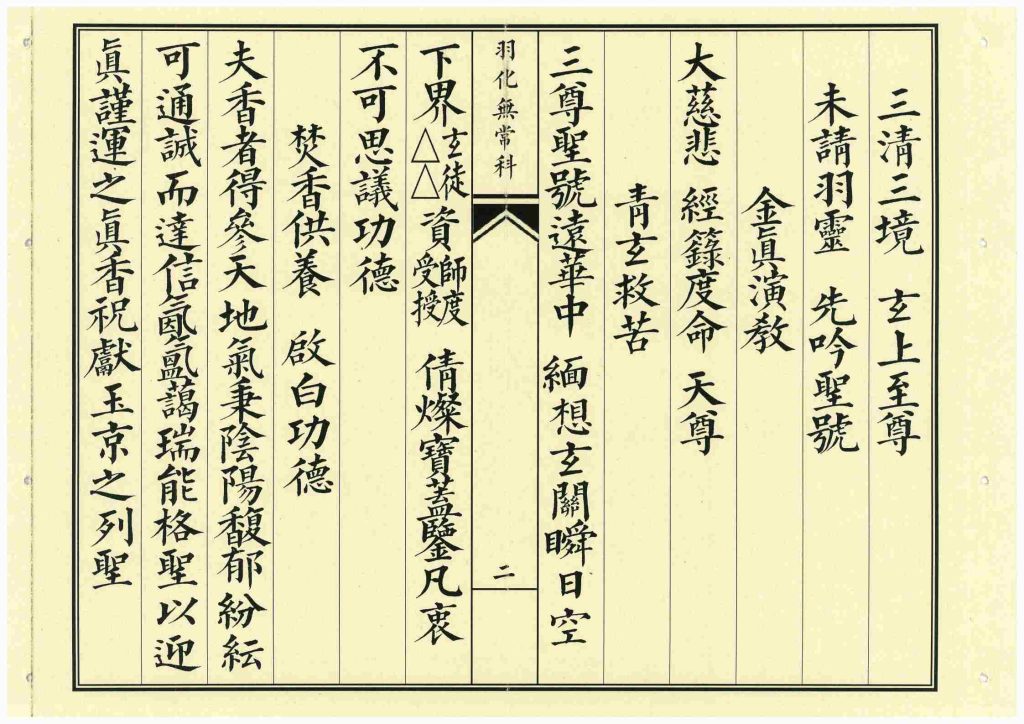 三淸三境　玄上至尊
未請羽靈　先吟聖號
金眞演教
大慈悲　經籙度命　天尊
青玄救苦
三尊聖號遠華中　緬想玄關瞬日空
羽化無常科
二
下界玄徒△△資師度受授　倩燦寶蓋鑒凡衷
不可思議功德
焚香供養　啟白功德
夫香者得參天地氣秉陰陽馥郁紛紜
可通誠而達信氤氳藹瑞能格聖以迎
眞謹運之眞香祝獻玉京之列聖